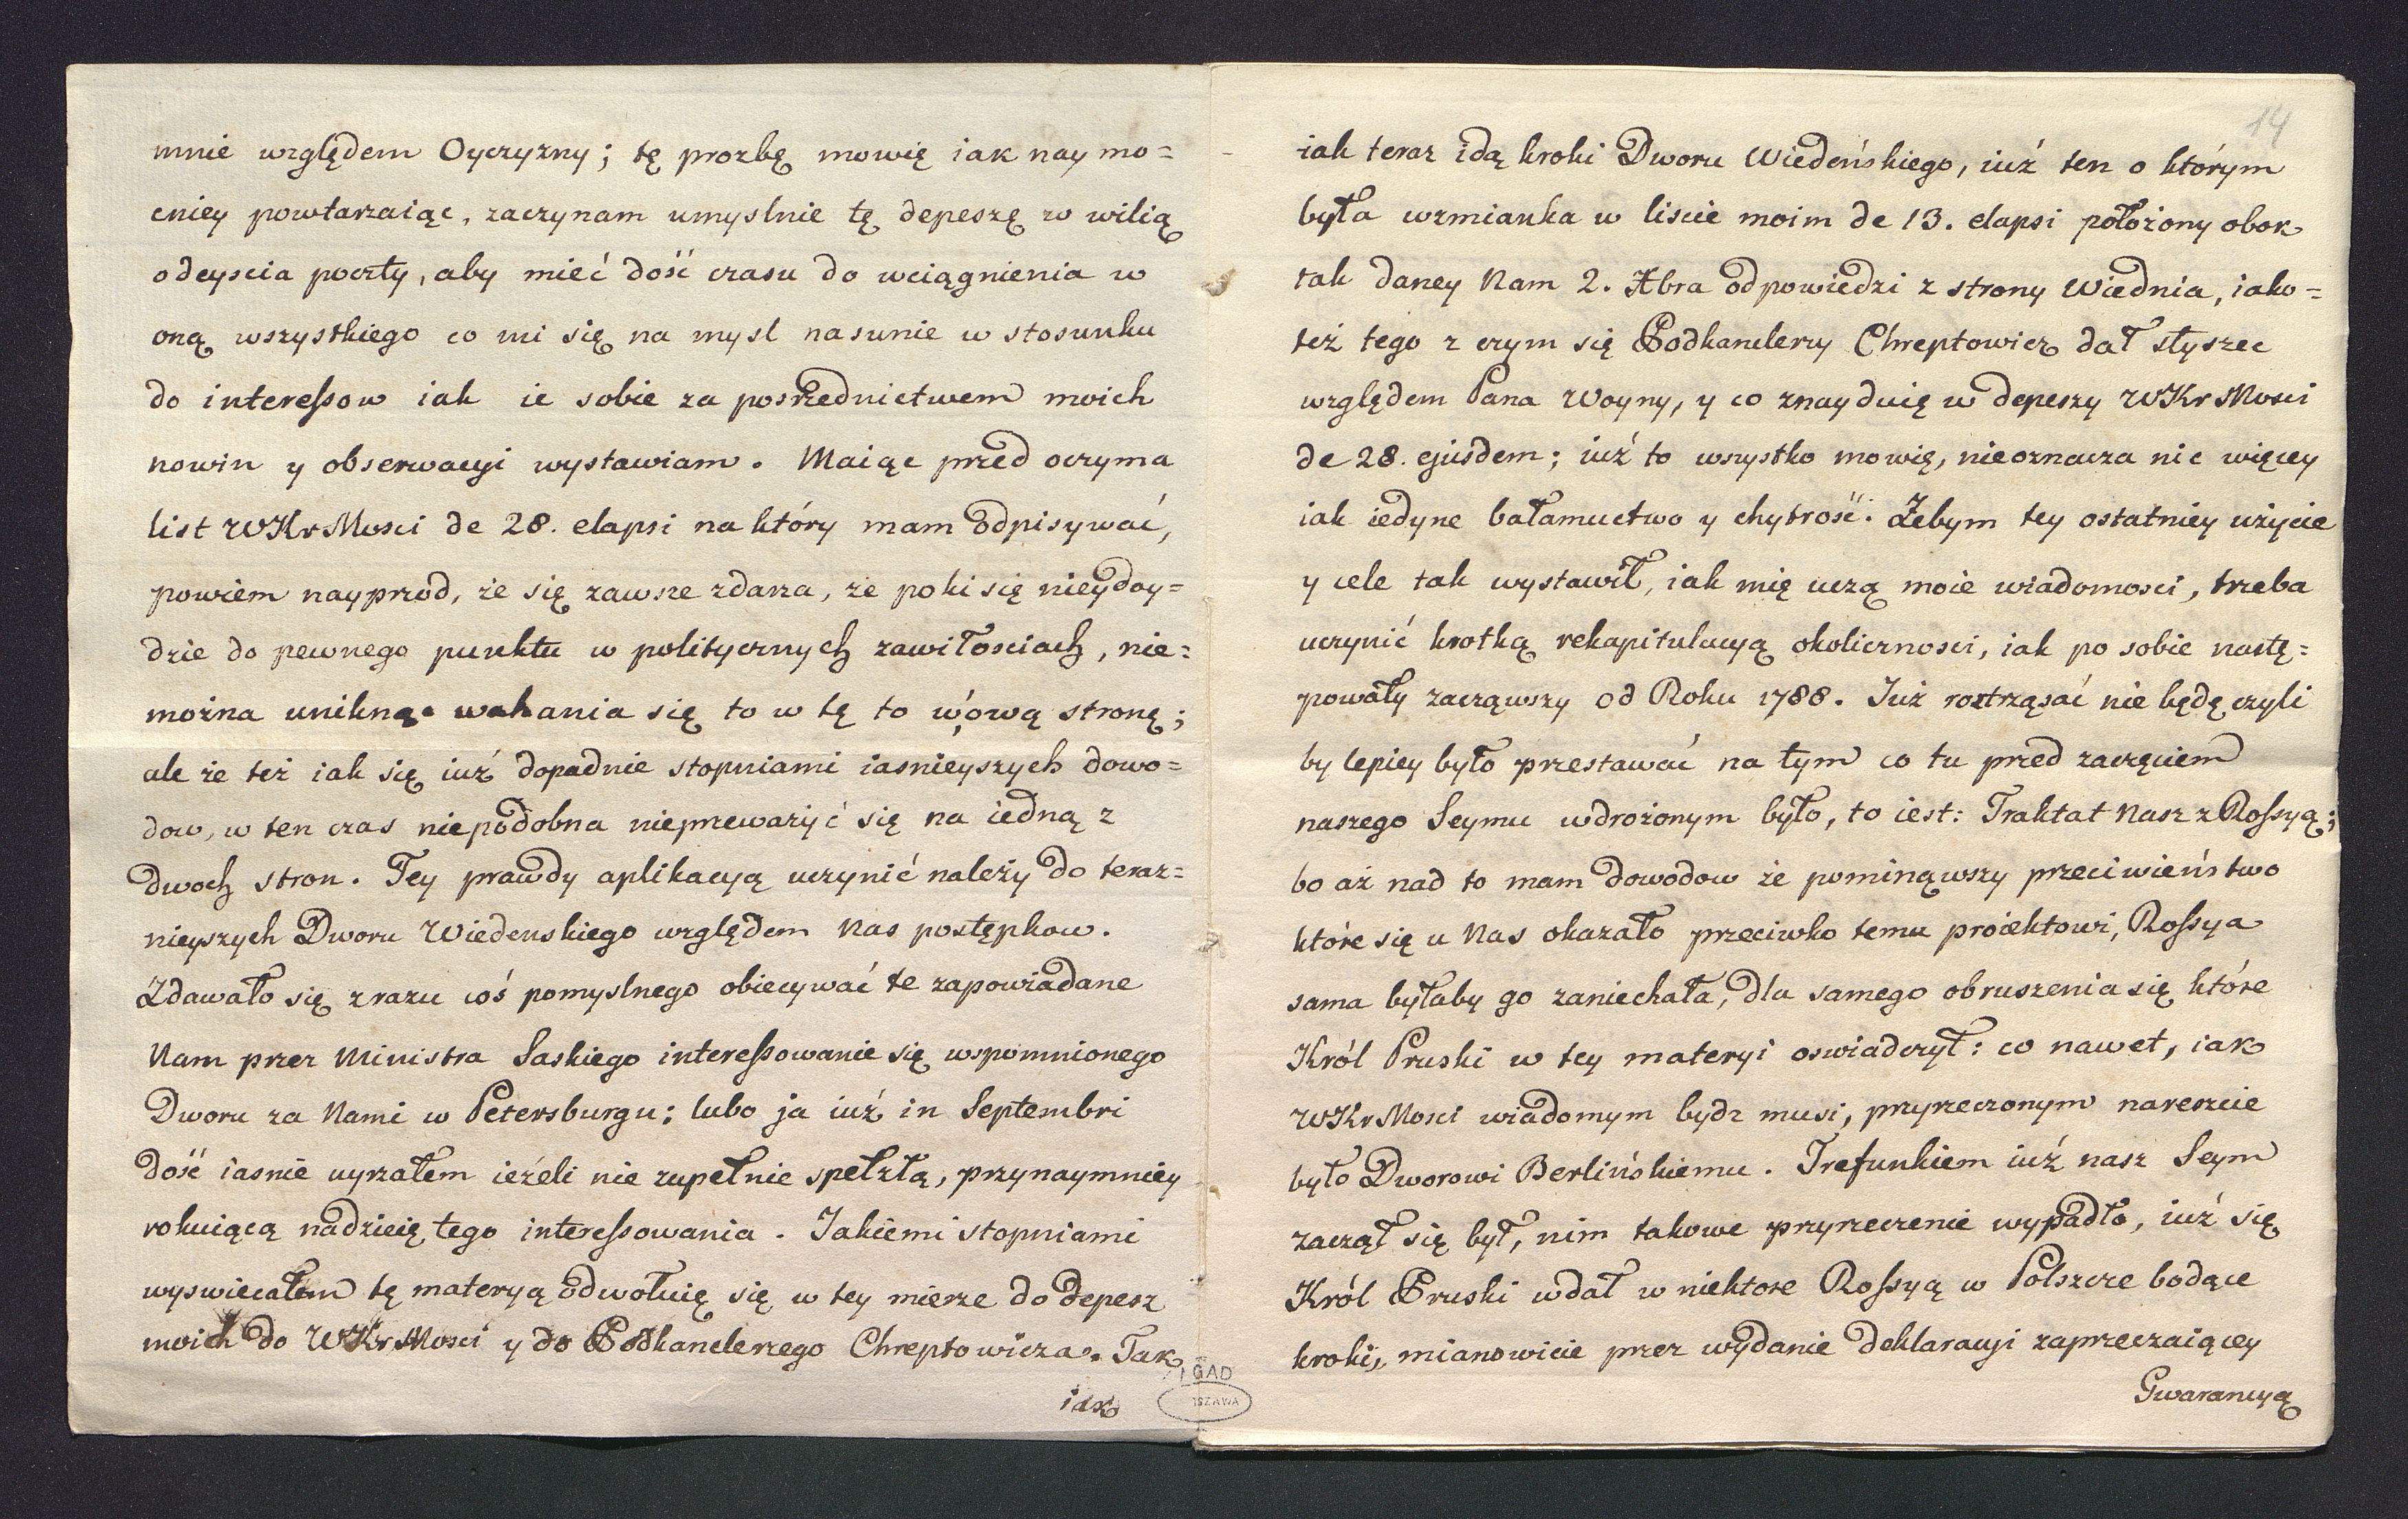 mnie względem Oyczyzny; tę prozbę mowię iak nay mo=
cniey powtarzaiąc, zaczynam umyslnie tę depeszę w wilią
odeyscia poczty, aby mieć dość czasu do wciągnienia w
oną wszystkiego co mi się na mysl nasunie w stosunku
do interessow iak ie sobie za posrzednictwem moich
nowin y obserwacyi wystawiam. Maiąc przed oczyma
list WKr Mosci de 28. elapsi na który mam odpisywać,
powiem nayprzod, że się zawsze zdarza, że poki się nieydoy=
dzie do pewnego punktu w politycznych zawiłosciach, nie=
można uniknąc wahania się to w tę to w ową stronę;
ale że też iak się iuż dopadnie stopniami iasnieyszych dowo=
dow, w ten czas niepodobna nieprzeważyć się na iedną z
dwoch stron. Tey prawdy aplikacyą uczynić należy do teraz=
nieyszych Dworu Wiedenskiego względem Nas postępkow.
Zdawało się zrazu coś pomyslnego obiecywać te zapowiadane
Nam przez Ministra Saskiego interessowanie się wspomnionego
Dworu za Nami w Petersburgu; lubo ja iuż in Septembri
dość iasnie uyrzałem ieżeli nie zupełnie spełzłą, przynaymniey
rokuiącą nadzieię tego interessowania. Jakiemi stopniami
wyswiecałem tę materyą odwołuię się w tey mierze do depesz
moich do WKr Mosci y do Podkanclerzego Chreptowicza. Tak
iak
14
iak teraz idą kroki Dworu Wiedeńskiego, iuż ten o którym
była wzmianka w liscie moim de 13. elapsi położony obok
tak daney Nam 2. Xbra odpowiedzi z strony Wiednia, iako=
też tego z czym się Podkanclerzy Chreptowicz dał słyszec
względem Pana Woyny, y co znayduię w depeszy WKr Mosci
de 28. ejusdem; iuż to wszystko mowię, nieoznacza nic więcey
iak iedyne bałamuctwo y chytrość. Żebym tey ostatniey użycie
y cele tak wystawił, iak mię uczą moie wiadomosci, trzeba
uczynić krotką rekapitulacyą okolicznosci, iak po sobie nastę=
powały zacząwszy od Roku 1788. Już roztrząsać nie będę czyli
by lepiey było przestawać na tym co tu przed zaczęciem
naszego Seymu wdrożonym było, to iest: Traktat Nasz z Rossyą;
bo aż nad to mam dowodow że pominąwszy przeciwieństwo
które się u Nas okazało przeciwko temu proiektowi, Rossya
sama byłaby go zaniechała, dla samego obruszenia się które
Król Pruski w tey materyi oswiadczył: co nawet, iak
WKr Mosci wiadomym bydz musi, przyrzeczonym nareszcie
było Dworowi Berlińskiemu. Trefunkiem iuż nasz Seym
zaczął się był, nim takowe przyrzeczenie wypadło, iuż się
Król Pruski wdał w niektore Rossyą w Polszcze bodące
kroki, mianowicie przez wydanie deklaracyi zaprzeczaiącey
Gwarancyą
GAD
SZAWA